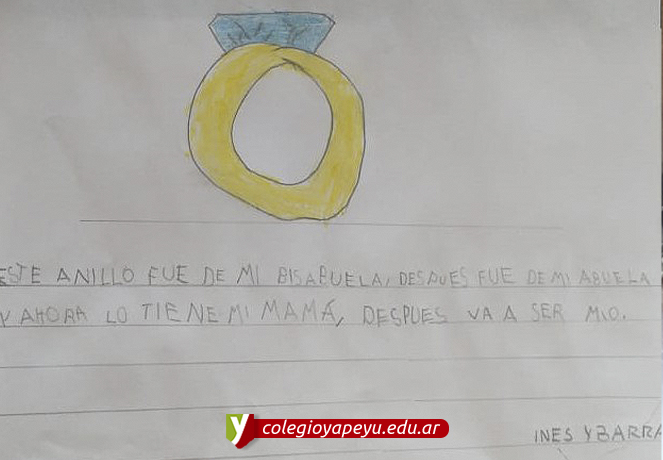 ESTE ANILLO FUE DE MI BISABUELA, DESPUES FUE DE MI ABUELA
Y AHORA LO TIENE MI MAMÁ, DESPUES VA A SER MIO.
y colegioyapeyu.edu.ar
INES YBARRA